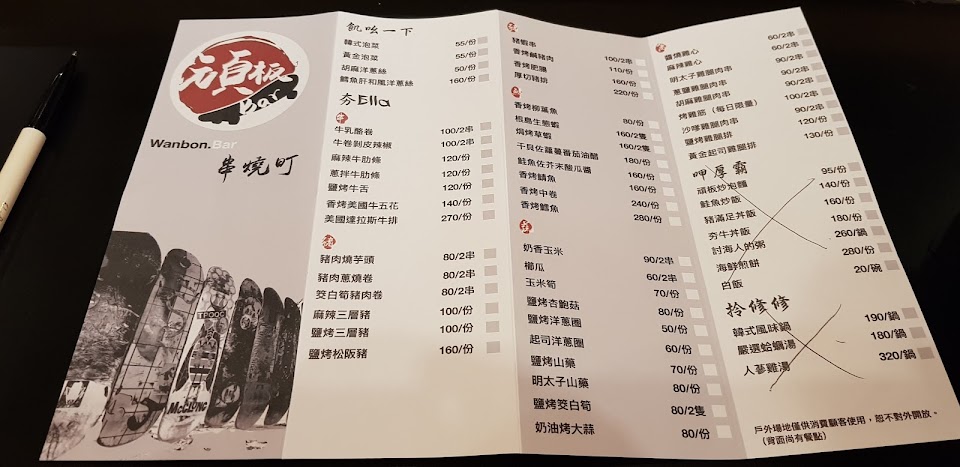 頑板
Bar
Wanbon.Bar
串燒町
TFOOC
McCLUNG
飢吆一下
韓式泡菜 55/份
黃金泡菜 55/份
胡麻洋蔥絲 50/份
鱈魚肝和風洋蔥絲 160/份
夯Ella
牛
牛乳酪卷 100/2串
牛卷剝皮辣椒 100/2串
麻辣牛肋條 120/份
蔥拌牛肋條 120/份
鹽烤牛舌 120/份
香烤美國牛五花 140/份
美國達拉斯牛排 270/份
豬肉燒芋頭 80/2串
豬肉蔥燒卷 80/2串
筊白筍豬肉卷 80/2串
麻辣三層豬 100/份
鹽烤三層豬 100/份
鹽烤松阪豬 160/份
豬蝦串 100/2串
香烤鹹豬肉 110/份
香烤肥腸 160/份
厚切豬排 220/份
香烤柳葉魚 80/份
根島生態蝦 160/2隻
焗烤草蝦 160/2隻
干貝佐蘿蔓番茄油醋 180/份
鮭魚佐芥末酸瓜醬 160/份
香烤鯖魚 160/份
香烤中卷 240/份
香烤鱈魚 280/份
奶香玉米 90/2串
櫛瓜 60/2串
玉米筍 70/份
鹽烤杏鮑菇 80/份
鹽烤洋蔥圈 50/份
起司洋蔥圈 60/份
鹽烤山藥 70/份
明太子山藥 80/份
鹽烤筊白筍 80/2隻
奶油烤大蒜 80/份
醬燒雞心 60/2串
麻辣雞心 60/2串
明太子雞腿肉串 90/2串
蔥鹽雞腿肉串 90/2串
胡麻雞腿肉串 90/2串
烤雞筋（每日限量） 100/2串
沙嗲雞腿肉串 90/2串
鹽烤雞腿排 120/份
黃金起司雞腿排 130/份
呷厚霸
頑板炒泡麵 95/份
鮭魚炒飯 140/份
豬滿足丼飯 160/份
夯牛丼飯 180/份
討海人的粥 260/鍋
海鮮煎餅 280/份
白飯 20/碗
拎修修
韓式風味鍋 190/鍋
嚴選蛤蠣湯 180/鍋
人蔘雞湯 320/鍋
戶外場地僅供消費顧客使用，恕不對外開放。
（背面尚有餐點）